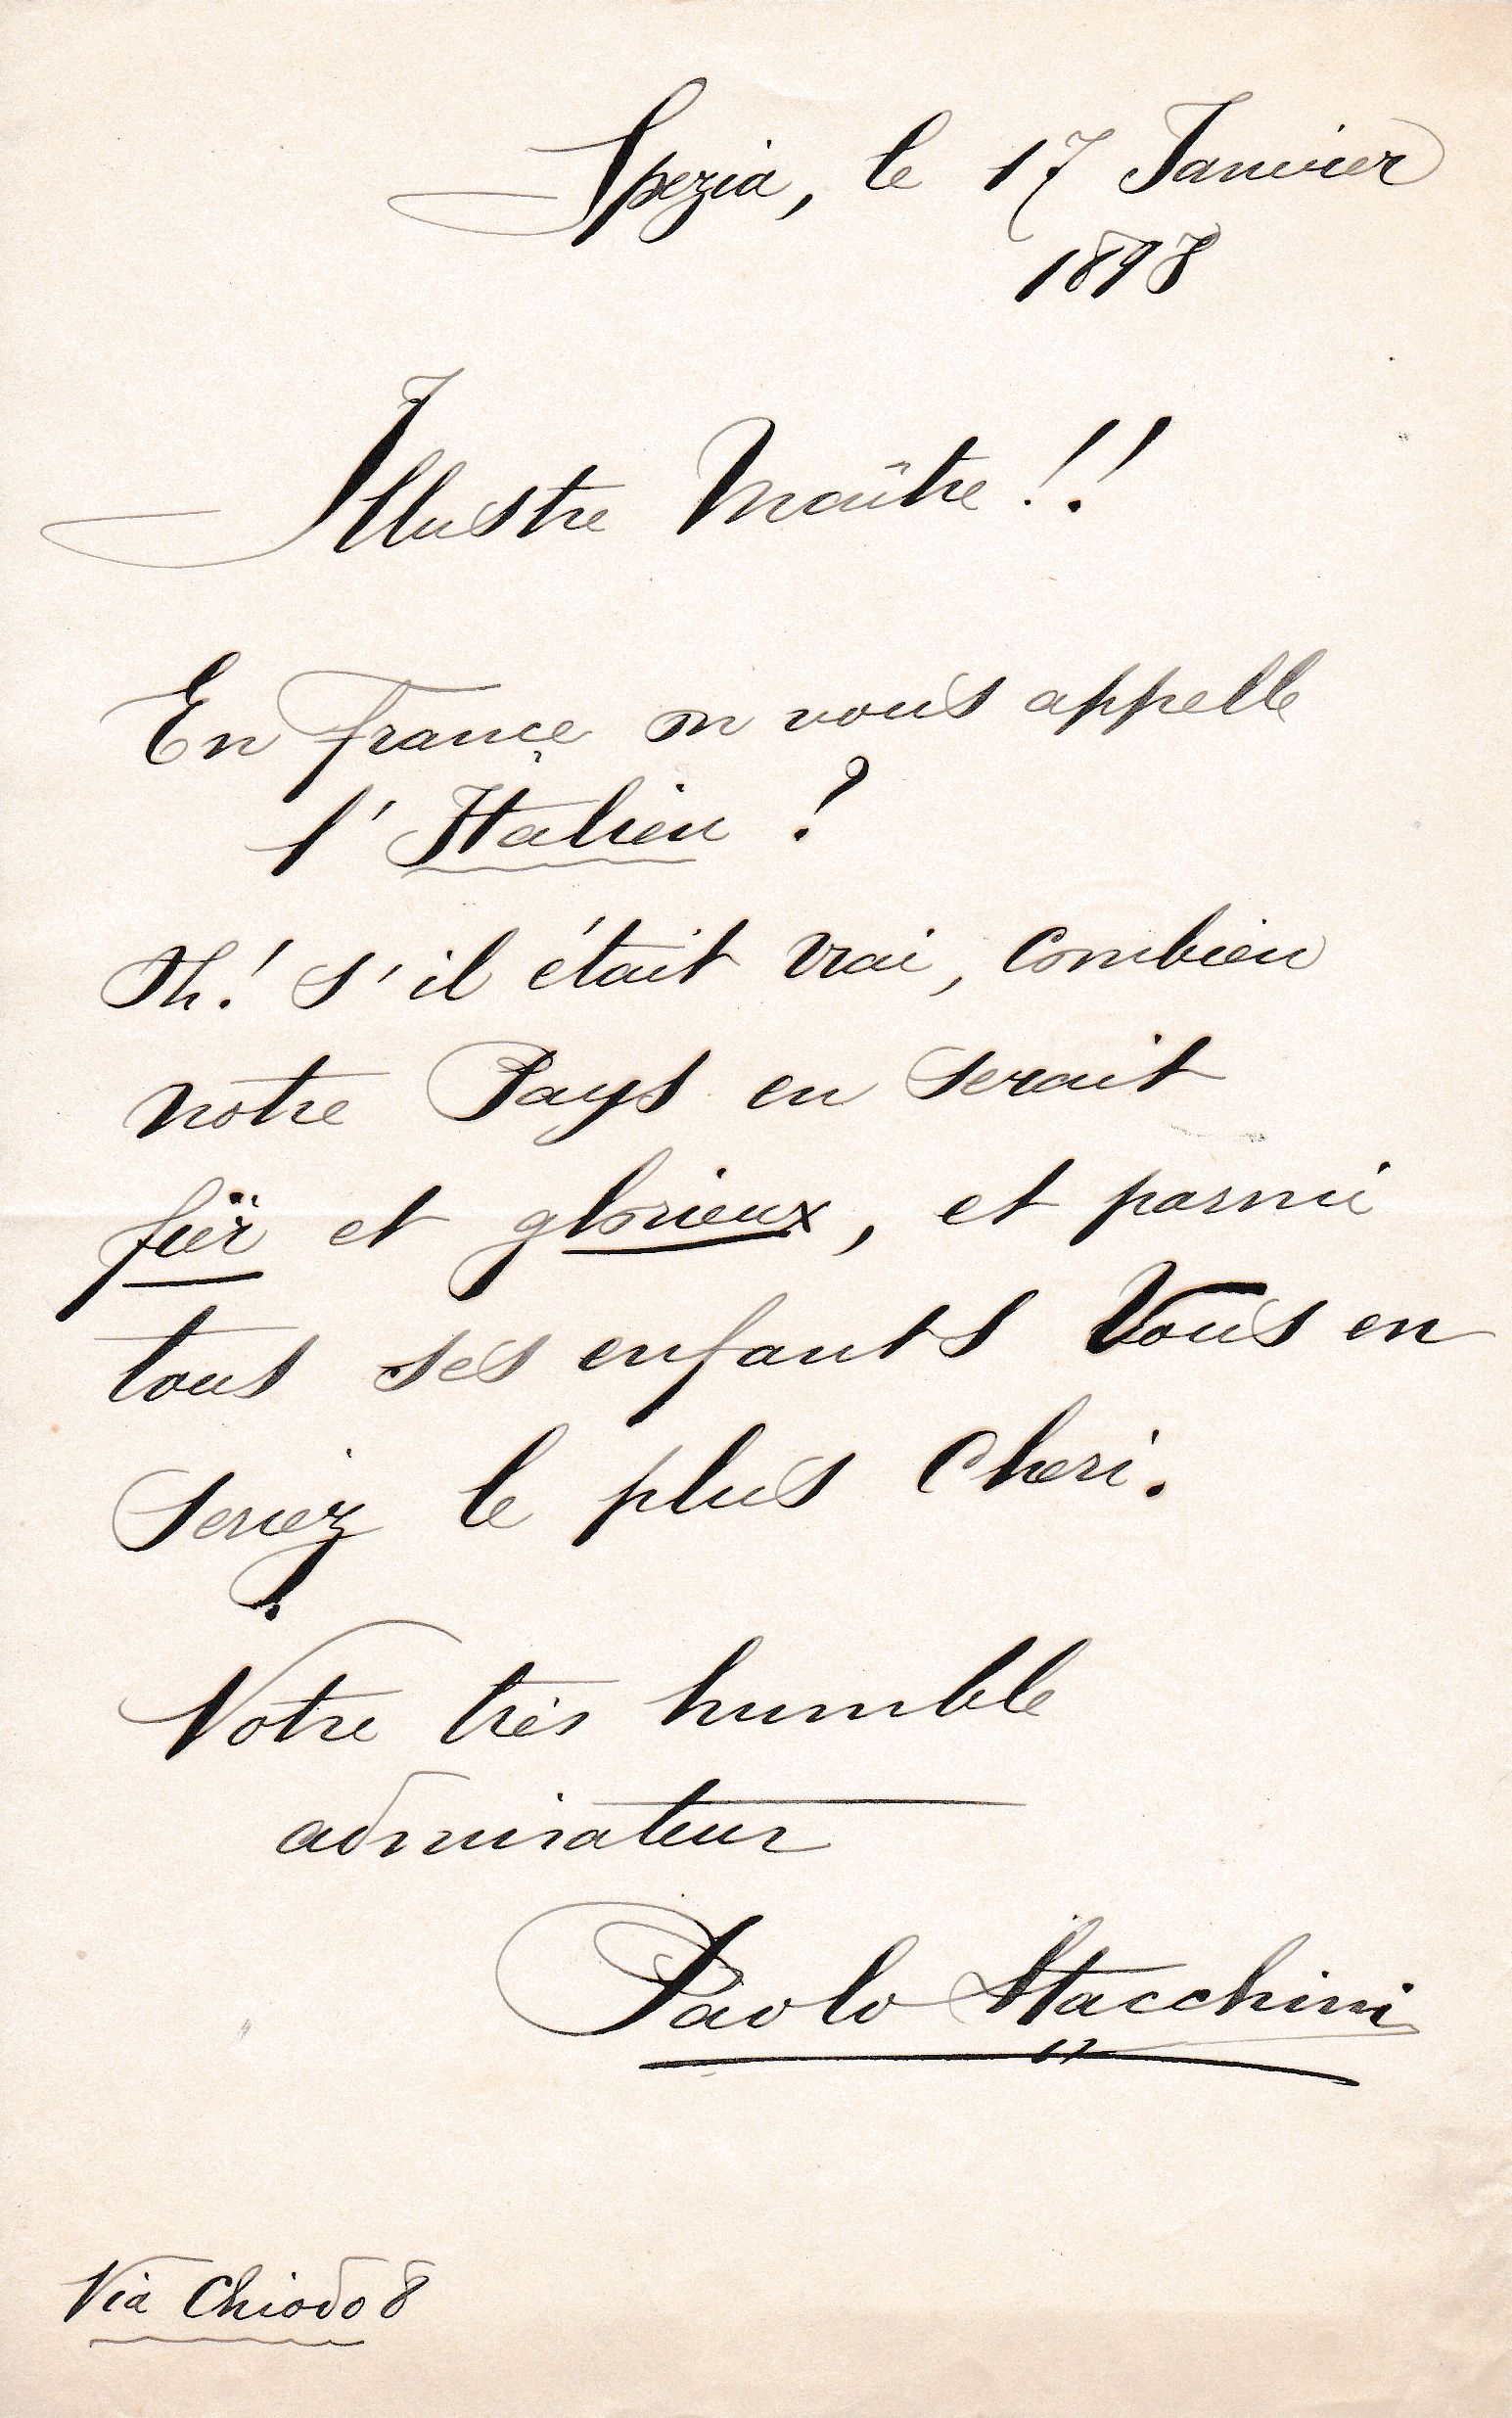 Spezia, le 17 Janvier
1898
Illustre Maître!!
En France on vous appelle
l'Italien ?
Oh! s'il était vrai, combien
notre Pays en serait
fiër et glorieux, et parmi
tous ses enfants Vous en
seriez le plus cheri.
Votre très humble
admirateur
Paolo Stacchini
Via Chiodo 8